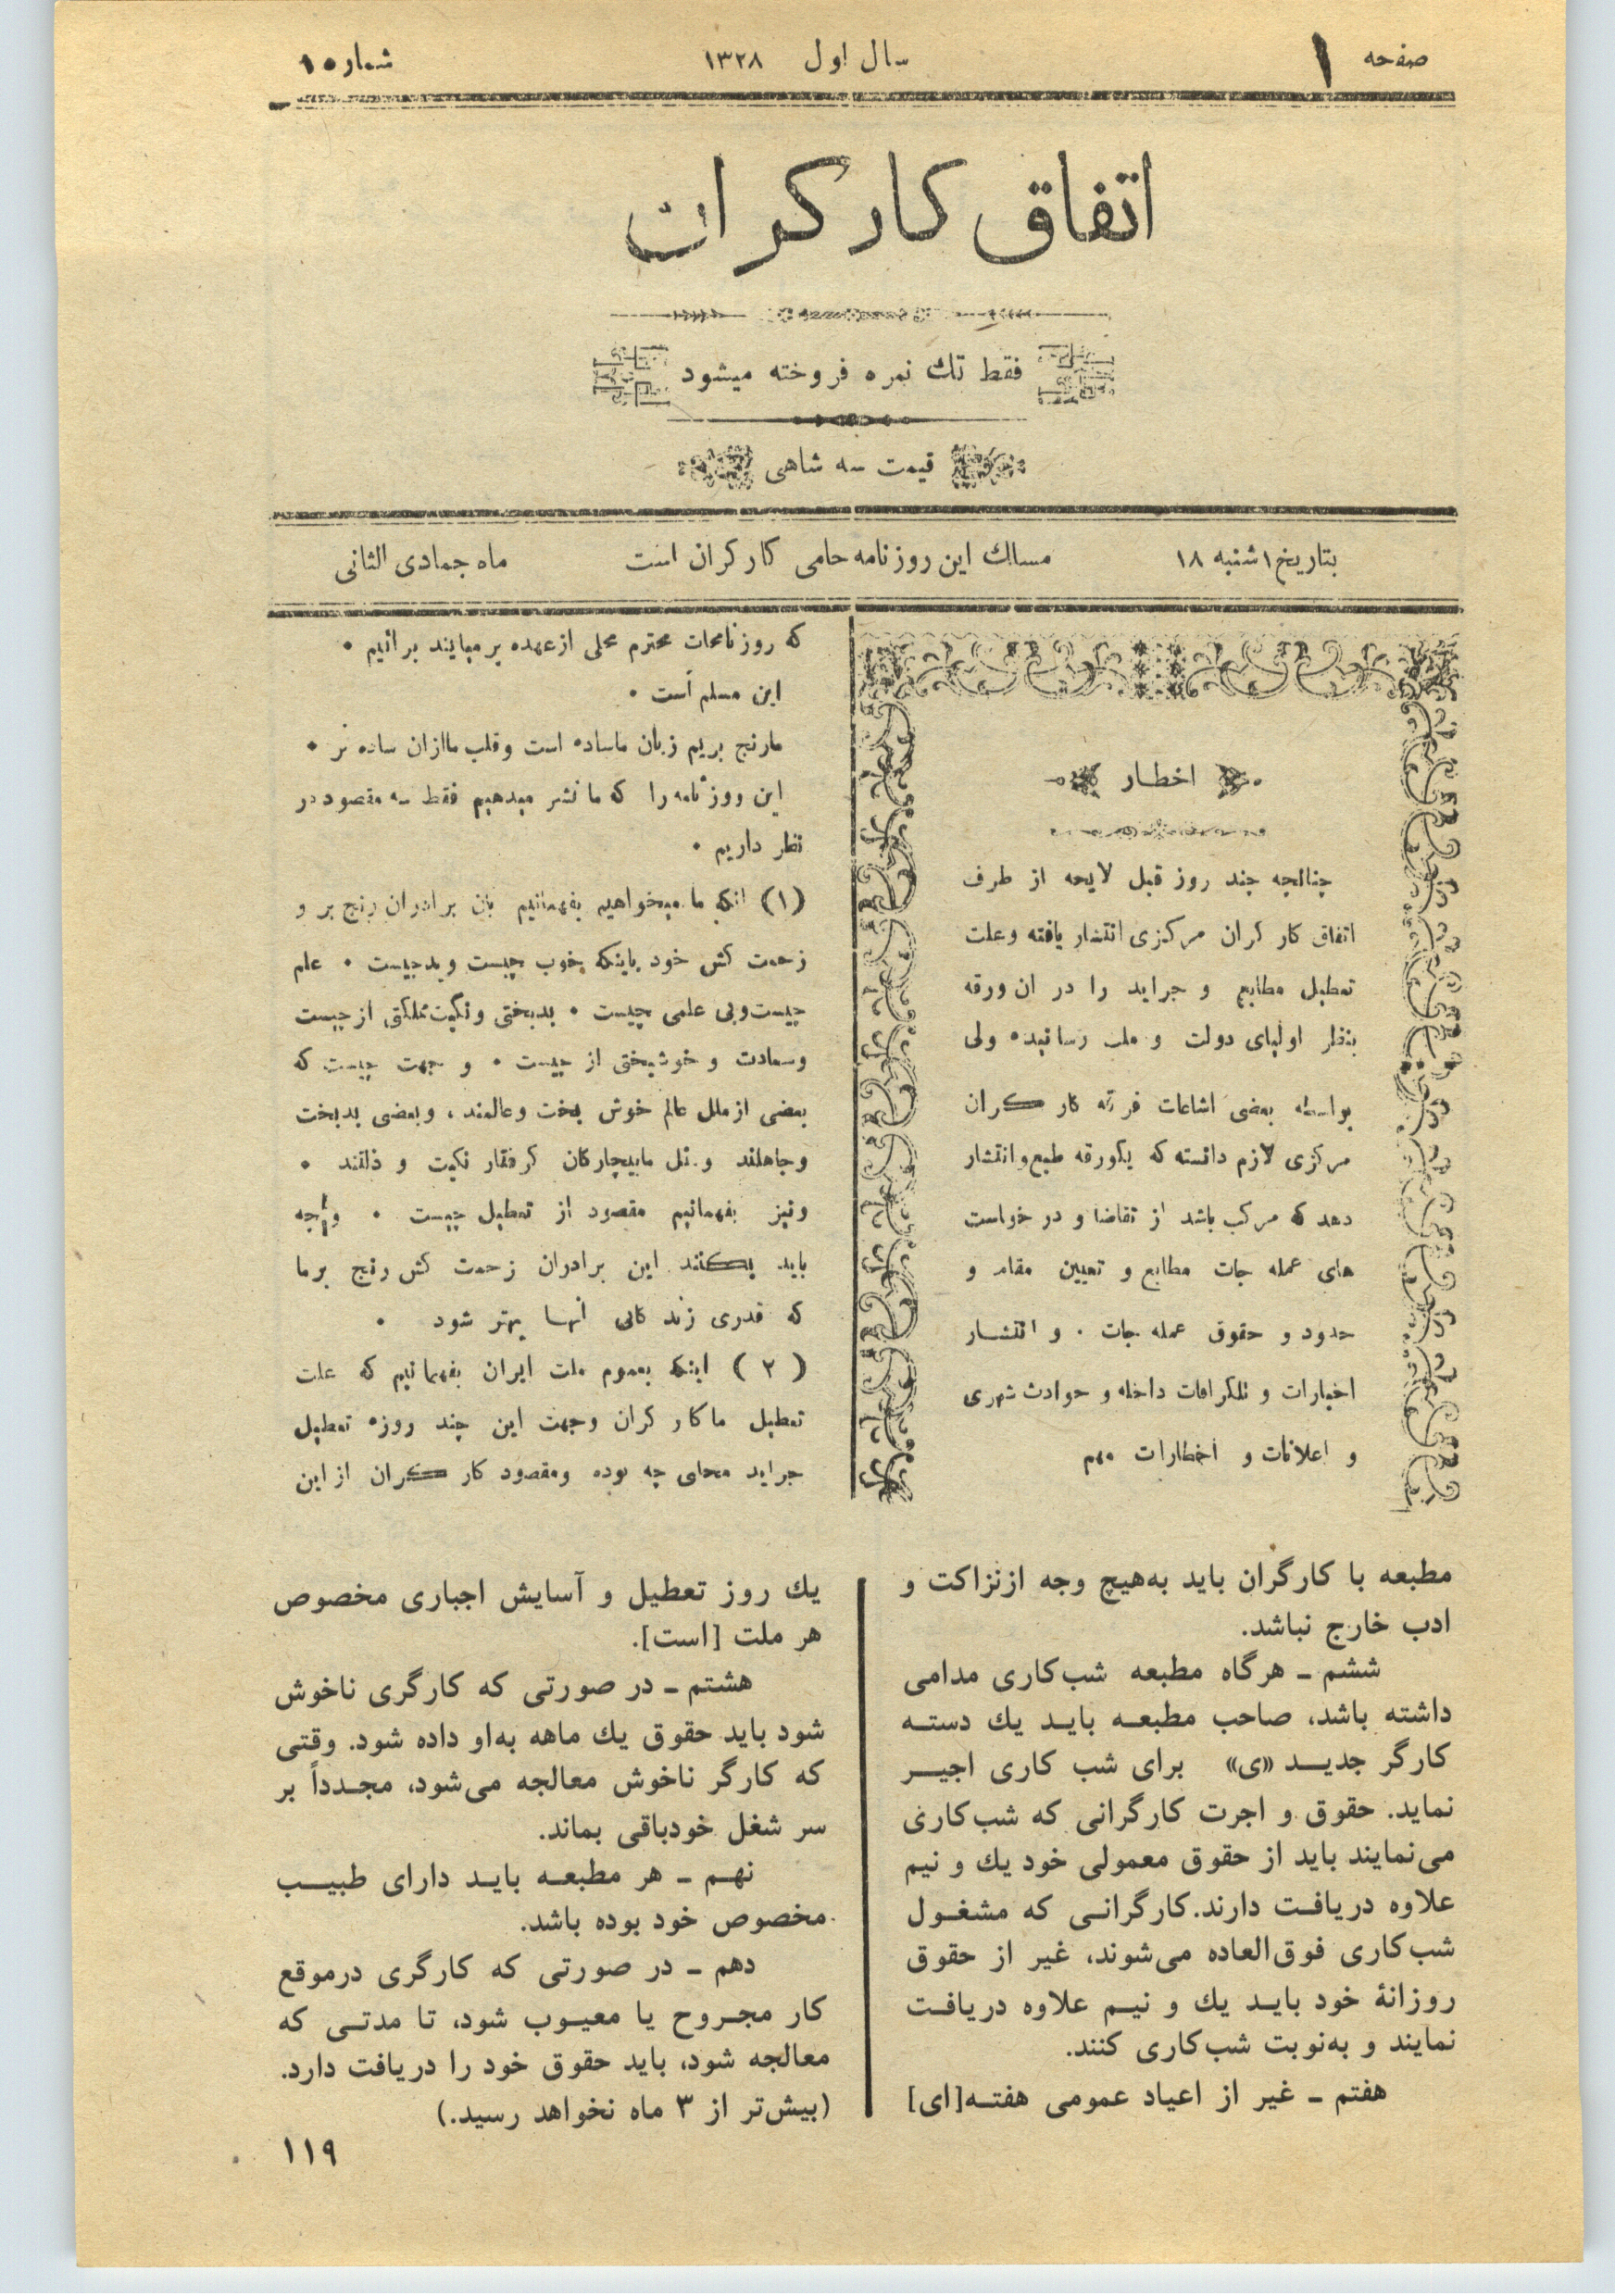 صفحه ۱
سال اول ۱۳۲۸
شماره ۱
اتفاق کارگران
فقط تك نمره فروخته میشود
قیمت سه شاهی
بتاریخ ۱ شنبه ۱۸
مسلك این روزنامه حامی کارگران است
ماه جمادی الثانی
اخطار
چنانچه چند روز قبل لایحه از طرف
اتفاق کارگران مرکزی انتشار یافته وعلت
تعطیل مطابع و جراید را در ان ورقه
بنظر اولیای دولت و ملت رسانیده ولی
بواسطه بعضی اشاعات فرقه کارگران
مرکزی لازم دانسته که یکورقه طبع و انتشار
دهد که مرکب باشد از تقاضا و در خواست
های عمله جات مطابع و تعیین مقام و
حدود و حقوق عمله جات . و انتشار
اخبارات و تلگرافات داخله و حوادث شهری
و اعلانات و اخطارات مهم
که روزنامجات محترم محلی از عهده بر میایند برائیم .
این مسلم است .
مارنج بریم زبان ماساده است وقلب ماازان ساده تر .
این روزنامه را که ما نشر میدهیم فقط سه مقصود در
نظر داریم .
(۱) انکه ما میخواهیم بفهمانیم بان برادران رنج بر و
زحمت کش خود باینکه خوب چیست و بدچیست . علم
چیست وبی علمی چیست . بدبختی و نکبت مملکتی از چیست
وسعادت و خوشبختی از چیست . و جهت چیست که
بعضی از ملل عالم خوش بخت وعالمند ، وبعضی بدبخت
وجاهلند و مثل مابیچارگان گرفتار نکبت و ذلتند .
ونیز بفهمانیم مقصود از تعطیل چیست . وانچه
باید بکنند این برادران زحمت کش رنج برما
که قدری زندگانی انها بهتر شود .
(۲) اینکه بعموم ملت ایران بفهمانیم که علت
تعطیل ماکارگران وجهت این چند روزه تعطیل
جراید محلی چه بوده ومقصود کارگران از این
مطبعه با کارگران باید به‌هیچ وجه ازنزاکت و
ادب خارج نباشد.
ششم ـ هرگاه مطبعه شب‌کاری مدامی
داشته باشد، صاحب مطبعه باید یك دسته
کارگر جدید «ی» برای شب کاری اجیر
نماید. حقوق و اجرت کارگرانی که شب‌کاری
می‌نمایند باید از حقوق معمولی خود یك و نیم
علاوه دریافت دارند. کارگرانی که مشغول
شب‌کاری فوق‌العاده می‌شوند، غیر از حقوق
روزانهٔ خود باید یك و نیم علاوه دریافت
نمایند و به‌نوبت شب‌کاری کنند.
هفتم ـ غیر از اعیاد عمومی هفته[ای]
یك روز تعطیل و آسایش اجباری مخصوص
هر ملت [است].
هشتم ـ در صورتی که کارگری ناخوش
شود باید حقوق یك ماهه به‌او داده شود. وقتی
که کارگر ناخوش معالجه می‌شود، مجدداً بر
سر شغل خودباقی بماند.
نهم ـ هر مطبعه باید دارای طبیب
مخصوص خود بوده باشد.
دهم ـ در صورتی که کارگری درموقع
کار مجروح یا معیوب شود، تا مدتی که
معالجه شود، باید حقوق خود را دریافت دارد.
(بیش‌تر از ۳ ماه نخواهد رسید.)
۱۱۹